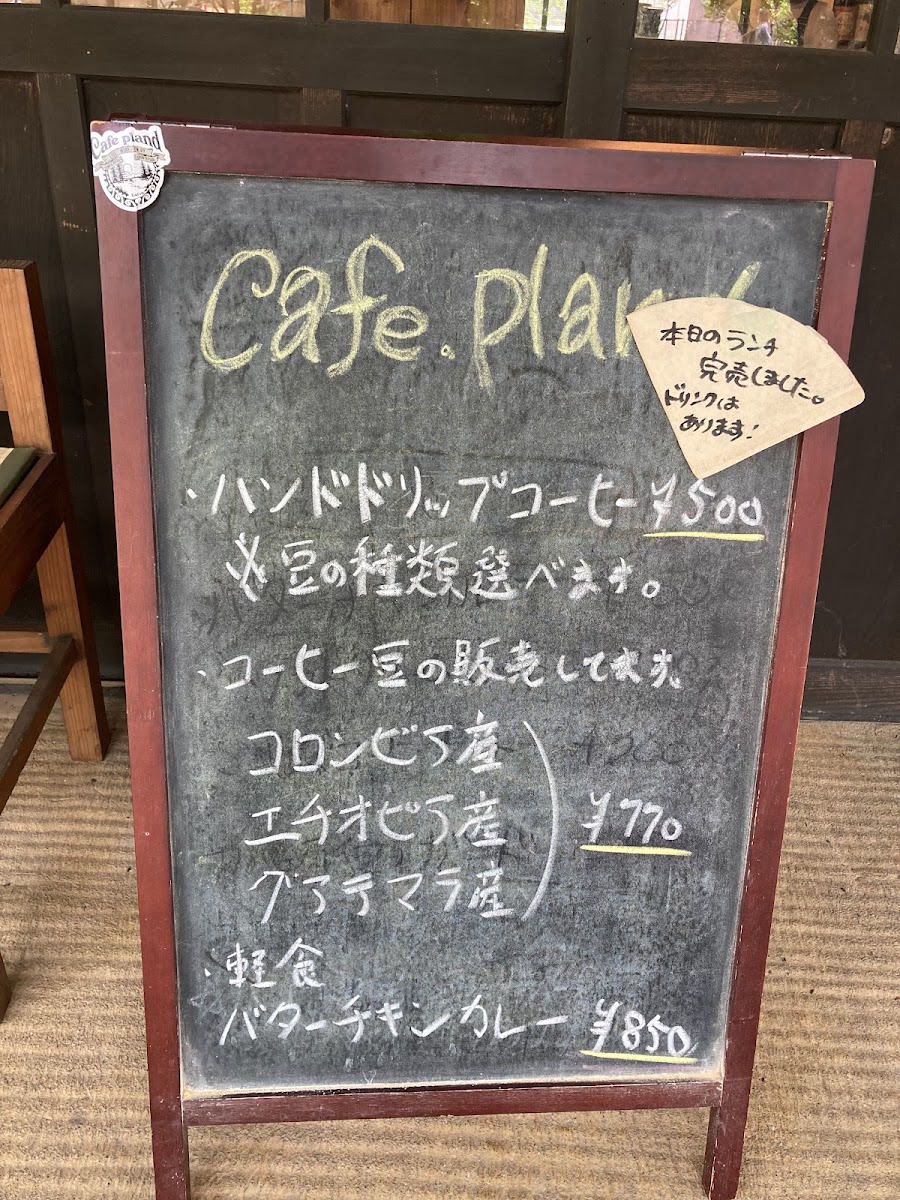 Cafe pland
Cafe.plan
本日のランチ
完売しました。
ドリンクは
あります!
・ハンドドリップコーヒー ¥500
※豆の種類選べます。
・コーヒー豆の販売してます
コロンビア産
エチオピア産
¥770
グアテマラ産
・軽食
バターチキンカレー ¥850